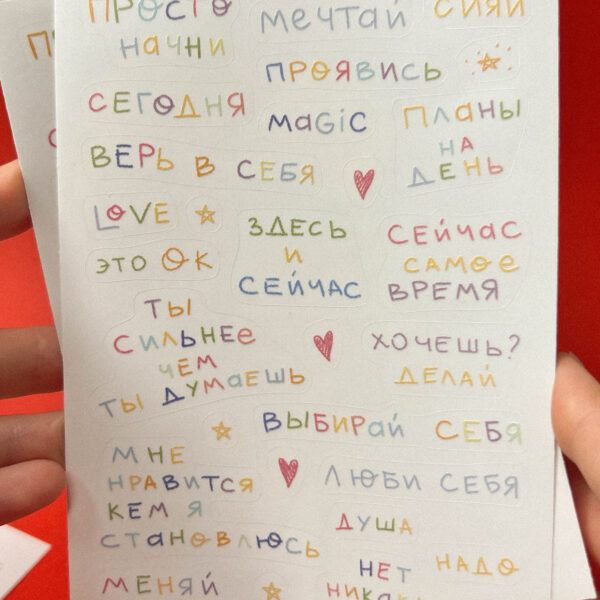 ПРОСТО
НАЧНИ
мечтай
СИЯЙ
ПРОЯВИСЬ
СЕГОДНЯ
MAGiC
ПЛАНЫ
НА
ДЕНЬ
ВЕРЬ В СЕБЯ
LOVE
ЗДЕСЬ
И
СЕЙЧАС
СЕЙЧАС
САМОЕ
ВРЕМЯ
ЭТО ОК
ТЫ
СИЛЬНЕЕ
ЧЕМ
ТЫ ДУМАЕШЬ
ХОЧЕШЬ?
ДЕЛАЙ
ВЫБИРАЙ СЕБЯ
МНЕ
НРАВИТСЯ
КЕМ Я
СТАНОВЛЮСЬ
ЛЮБИ СЕБЯ
ДУША
НЕТ
НАДО
МЕНЯЙ